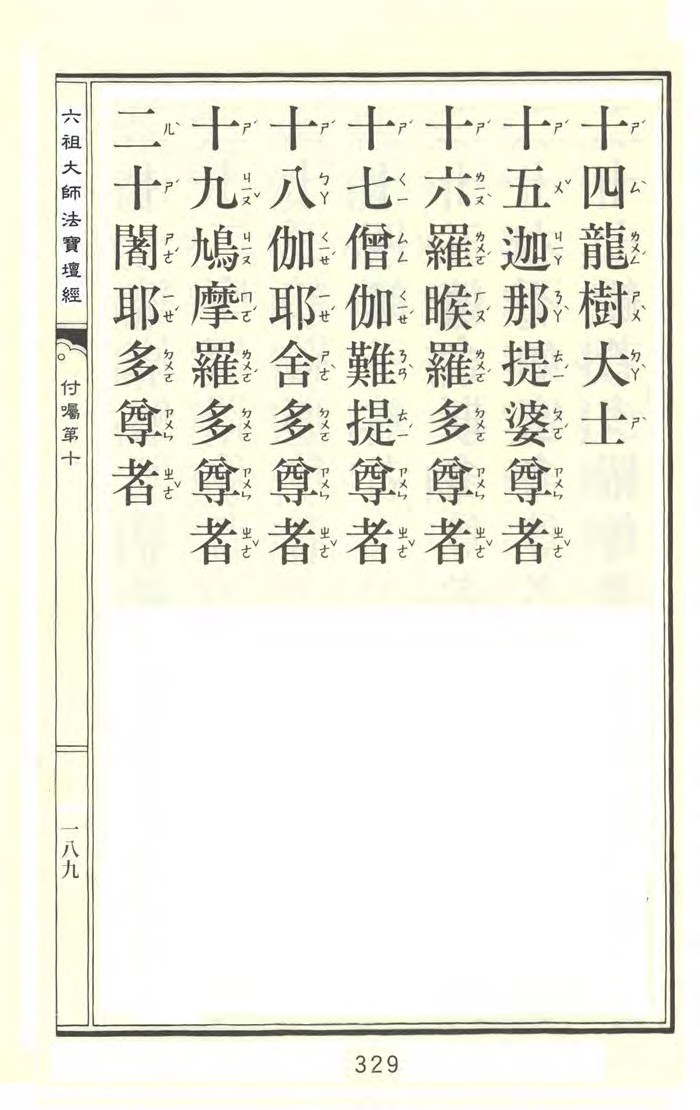 十四龍樹大士
十五迦那提婆尊者
十六羅睺羅多尊者
十七僧伽難提尊者
十八伽耶舍多尊者
十九鳩摩羅多尊者
二十闍耶多尊者
六祖大師法寶壇經
付囑第十
一八九
329